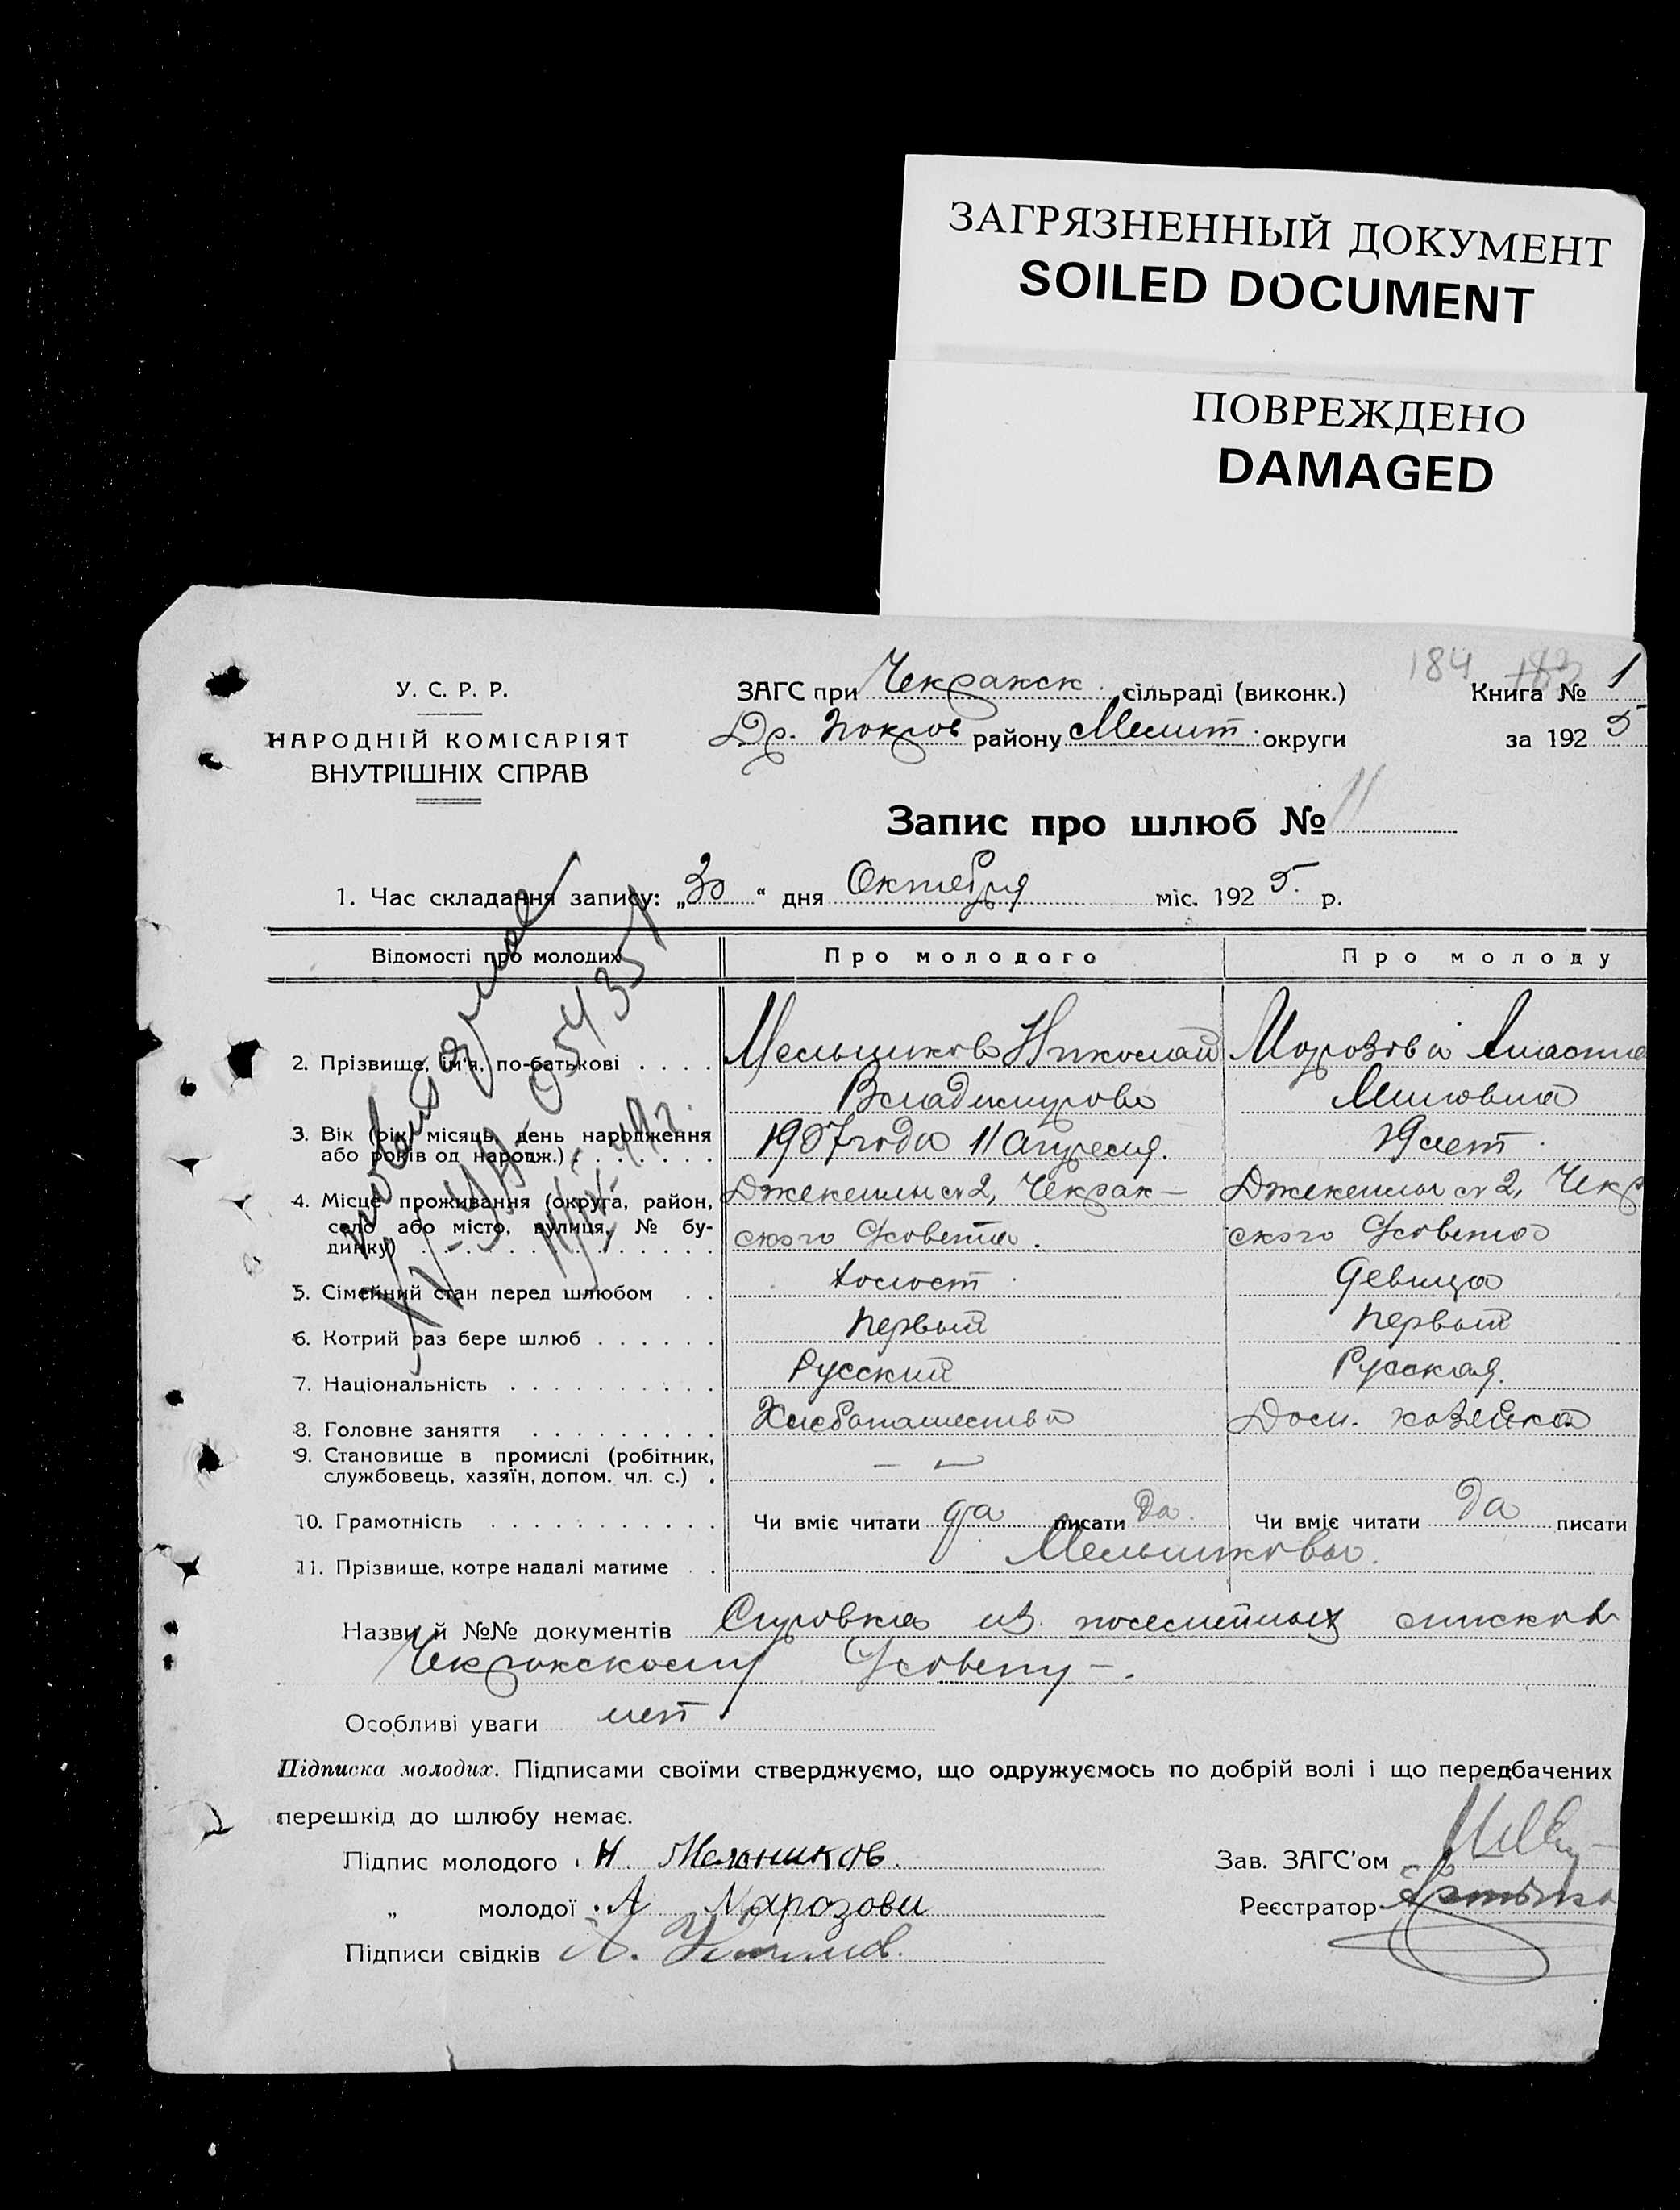 ЗАГРЯЗНЕННЫЙ ДОКУМЕНТ
SOILED DOCUMENT
ПОВРЕЖДЕНО
DAMAGED
184 183
У. С. Р. Р.
НАРОДНІЙ КОМІСАРІЯТ
ВНУТРІШНІХ СПРАВ
ЗАГС при Чекракск. сільраді (виконк.)
Др. Покров району Мелит. округи
Книга № 1
за 1925
Запис про шлюб № 11
1. Час складання запису: „30" дня Октебря міс. 1925. р.
Відомості про молодих
Про молодого
Про молоду
2. Прізвище, ім'я, по-батькові
Мельников Николай
Владимирово
Морозова
3. Вік (рік, місяць, день народження
або років од народж.)
1907 года 11 апреля.
19 лет.
4. Місце проживання (округа, район,
село або місто, вулиця, № бу-
динку)
№ 2, Чекрак-
ского с/совета.
№ 2, Чекр
ского с/совета
5. Сімейний стан перед шлюбом
холост
девица
6. Котрий раз бере шлюб
первый
первый
7. Національність
Русский
Русская.
8. Головне заняття
Дом. хозяйка
9. Становище в промислі (робітник,
службовець, хазяїн, допом. чл. с.)
—
10. Грамотність
Чи вміє читати да писати да.
Чи вміє читати да писати
11. Прізвище, котре надалі матиме
Мельниковы.
Назви й №№ документів из посемейных списков
Чекракскому с/совету —.
Особливі уваги нет
Підписка молодих. Підписами своїми стверджуємо, що одружуємось по добрій волі і що передбачених
перешкід до шлюбу немає.
Підпис молодого Н. Мельников.
„ молодої А Марозова
Підписи свідків А.
Зав. ЗАГС'ом
Реєстратор